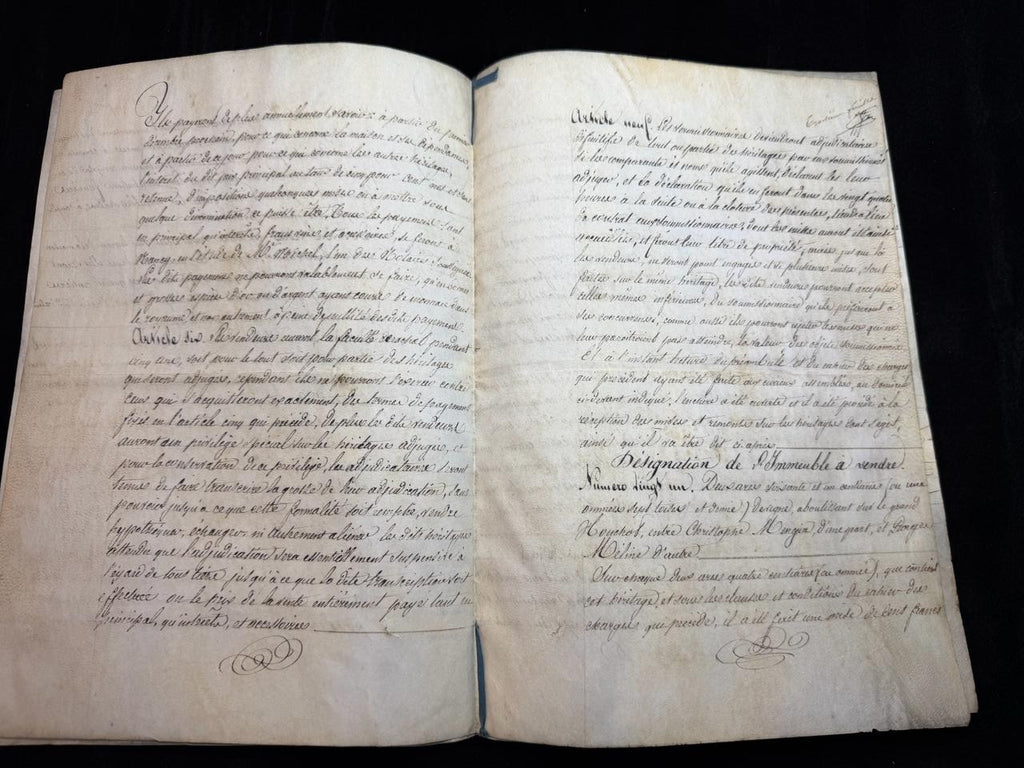 Ils payront de plus annuellement
prochain, pour ce qui concerne la maison et ses dépendances
et à partir de ce jour pour ce qui concerne les autres héritages,
l'intérêt du dit prix principal au taux de cinq pour cent net et sans
retenue, d'impositions quelconques mises ou à mettre sous
quelque dénomination ce puisse être. Tous les payemens tant
en principal qu'intérêts, frais dûs et accessoires, se feront à
Nancy, en l'étude de Me l'un des Notaires
Les dits payemens ne pourront valablement se faire, qu'en
et grosses espèces d'or ou d'argent ayant cours de monnaie dans
le royaume et non autrement à peine de nullité des dits payemens.
Article six. Les vendeurs auront la faculté pendant
cinq ans, soit pour le tout soit pour partie des héritages
qui seront adjugés, cependant ils ne pourront l'exercer contre
ceux qui s'acquitteront exactement, des termes de payement
fixés en l'article cinq qui précède, De plus les dits vendeurs
auront un privilège spécial sur les héritages adjugés, et
pour la conservation de ce privilège, les adjudicataires seront
tenus de faire transcrire la grosse de leur adjudication, sans
pouvoir jusqu'à ce que cette formalité soit remplie, vendre
hypothéquer, échanger, ni autrement aliéner les dits héritages
attendu que l'adjudication sera essentiellement suspendue à
l'égard de tous tiers jusqu'à ce que la dite transcription soit
effectuée ou le prix de la vente entièrement payé tant en
principal, qu'intérêts, et accessoires.
feuille
Article neuf. Les soumissionnaires deviendront adjudicataires
définitifs de tout ou partie des héritages par
de les comparants ès noms qu'ils agissent, déclarent les leur
adjuger, et la déclaration qu'ils en feront dans les vingt quatre
heures à la suite ou à la clôture des présentes, tiendra lieu
de contrat aux soumissionnaires, dont les mises auront été ainsi
acquittées et feront leur titre de propriété; mais jusque là
les vendeurs, ne seront point engagés et si plusieurs mises, sont
faites sur le même héritage, les dits vendeurs pourront accepter
celles même inférieures, du soumissionnaire qu'ils préféreront à
ses concurrents, comme aussi ils pourront rejeter les mises qui ne
leur paraîtront pas atteindre, la valeur des objets soumissionnés
Et à l'instant lecture du présent et du cahier des charges
qui précèdent ayant été faite aux curieux assemblés, au domicile
ci-devant indiqué, l'enchère a été ouverte et il a été procédé à la
réception des mises et remontes sur les héritages dont s'agit,
ainsi qu'il va être dit ci après.
Désignation de l'Immeuble à vendre.
Numéro vingt un. Deux ares soixante et un centiares (ou une
ommée sept toises et demie) de vigne, aboutissant sur le grand
entre Christophe Mengin, d'une part, et Georges
Méline d'autre
Sur chaque deux ares quatre centiares (ou ommée), que contient
cet héritage, et sous les clauses et conditions du cahier des
charges qui précède, il a été fait une mise de cent francs